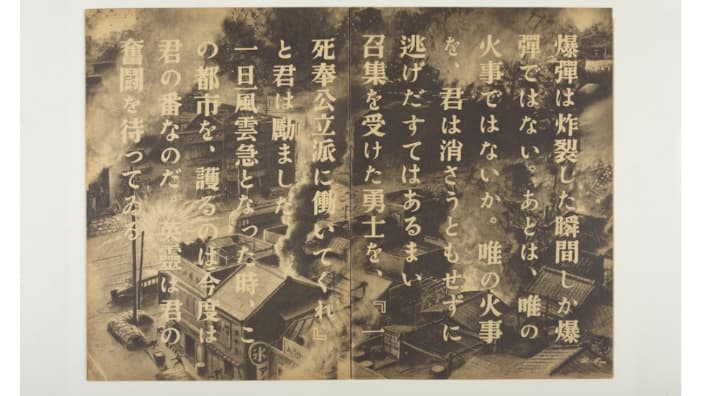 爆彈は炸裂した瞬間しか爆
彈ではない。あとは、唯の
火事ではないか。唯の火事
を、君は消さうともせずに
逃げだすてはあるまい
召集を受けた勇士を、『一
死奉公立派に働いてくれ』
と君は勵ました
一旦風雲急となった時、こ
の都市を、護るのは今度は
君の番なのだ。英靈は君の
奮鬪を待ってゐる
氷